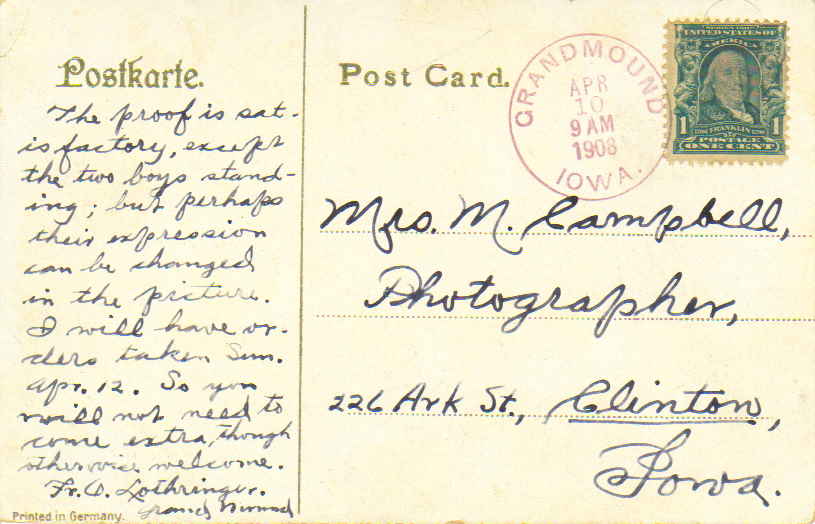 Postkarte.
Post Card.
GRANDMOUND
APR
10
9 AM
1908
IOWA.
SERIES 1902
UNITED STATES OF
AMERICA
1 FRANKLIN 1
POSTAGE
ONE CENT
The proof is sat-
isfactory, except
the two boys stand-
ing; but perhaps
their expression
can be changed
in the picture.
I will have or-
ders taken Sun.
Apr. 12. So you
will not need to
come extra, though
otherwise welcome.
Fr. O. Lothringer.
Grand Mound
Mrs. M. Campbell,
Photographer,
226 Ark St., Clinton,
Iowa.
Printed in Germany.